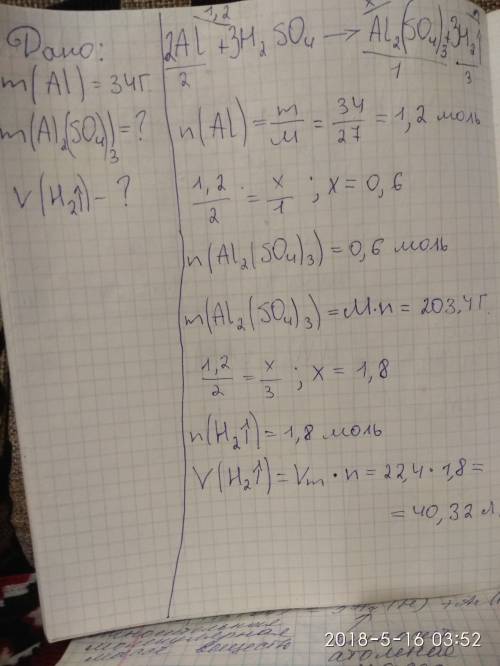 Дано:
m(Al) = 34г
m(Al₂(SO₄)₃) = ?
V(H₂↑) - ?
1,2 x
2Al + 3H₂SO₄ → Al₂(SO₄)₃ + 3H₂↑
2 1 3
n(Al) = m/M = 34/27 = 1,2 моль
1,2/2 = x/1 ; x = 0,6
n(Al₂(SO₄)₃) = 0,6 моль
m(Al₂(SO₄)₃) = M·n = 203,4г.
1,2/2 = x/3 ; x = 1,8
n(H₂↑) = 1,8 моль
V(H₂↑) = Vm · n = 22,4 · 1,8 =
= 40,32 л.
2018-5-16 03:52